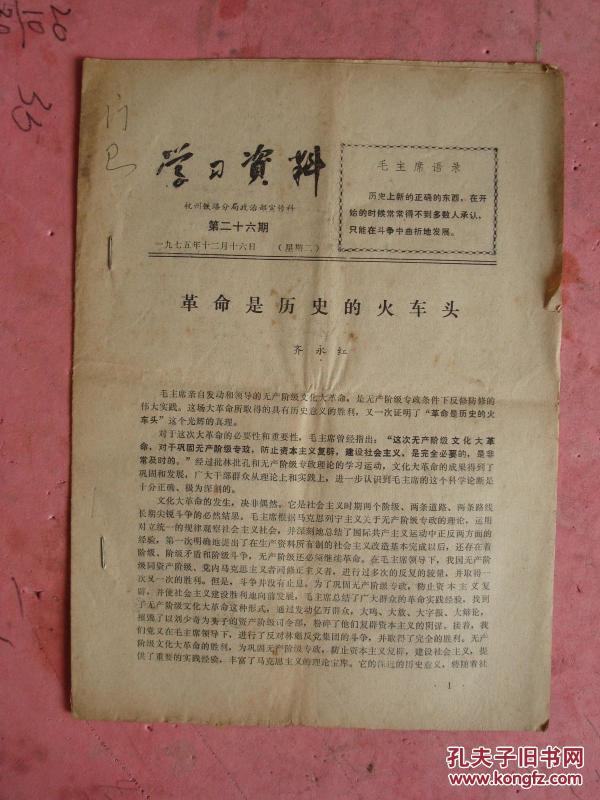 20
10
30
33
学习资料
杭州铁路分局政治部宣传科
第二十六期
一九七五年十二月十六日 （星期二）
毛主席语录
历史上新的正确的东西，在开
始的时候常常得不到多数人承认，
只能在斗争中曲折地发展。
革命是历史的火车头
齐永红
毛主席亲自发动和领导的无产阶级文化大革命，是无产阶级专政条件下反修防修的
伟大实践。这场大革命所取得的具有历史意义的胜利，又一次证明了“革命是历史的火
车头”这个光辉的真理。
对于这次大革命的必要性和重要性，毛主席曾经指出：“这次无产阶级文化大革
命，对于巩固无产阶级专政，防止资本主义复辟，建设社会主义，是完全必要的，是非
常及时的。”经过批林批孔和无产阶级专政理论的学习运动，文化大革命的成果得到了
巩固和发展，广大干部群众从理论上和实践上，进一步认识到毛主席的这个科学论断是
十分正确、极为深刻的。
文化大革命的发生，决非偶然。它是社会主义时期两个阶级、两条道路、两条路线
长期尖锐斗争的必然结果。毛主席根据马克思列宁主义关于无产阶级专政的理论，运用
对立统一的规律观察社会主义社会，并深刻地总结了国际共产主义运动中正反两方面的
经验，第一次明确地提出了在生产资料所有制的社会主义改造基本完成以后，还存在着
阶级、阶级矛盾和阶级斗争，无产阶级还必须继续革命。在毛主席领导下，我国无产阶
级同资产阶级、党内马克思主义者同修正主义者，进行过多次的反复的较量，并取得一
次又一次的胜利。但是，斗争并没有止息。为了巩固无产阶级专政，防止资本主义复
辟，并使社会主义建设胜利地向前发展，毛主席总结了广大群众的革命实践经验，找到
了无产阶级文化大革命这种形式，通过发动亿万群众，大鸣、大放、大字报、大辩论，
摧毁了以刘少奇为头子的资产阶级司令部，粉碎了他们复辟资本主义的阴谋。接着，我
们党又在毛主席领导下，进行了反对林彪反党集团的斗争，并取得了完全的胜利。无产
阶级文化大革命的胜利，为巩固无产阶级专政，防止资本主义复辟，建设社会主义，提
供了重要的实践经验，丰富了马克思主义的理论宝库。它的深远的历史意义，将随着社
· 1 ·
孔夫子旧书网
www.kongfz.com